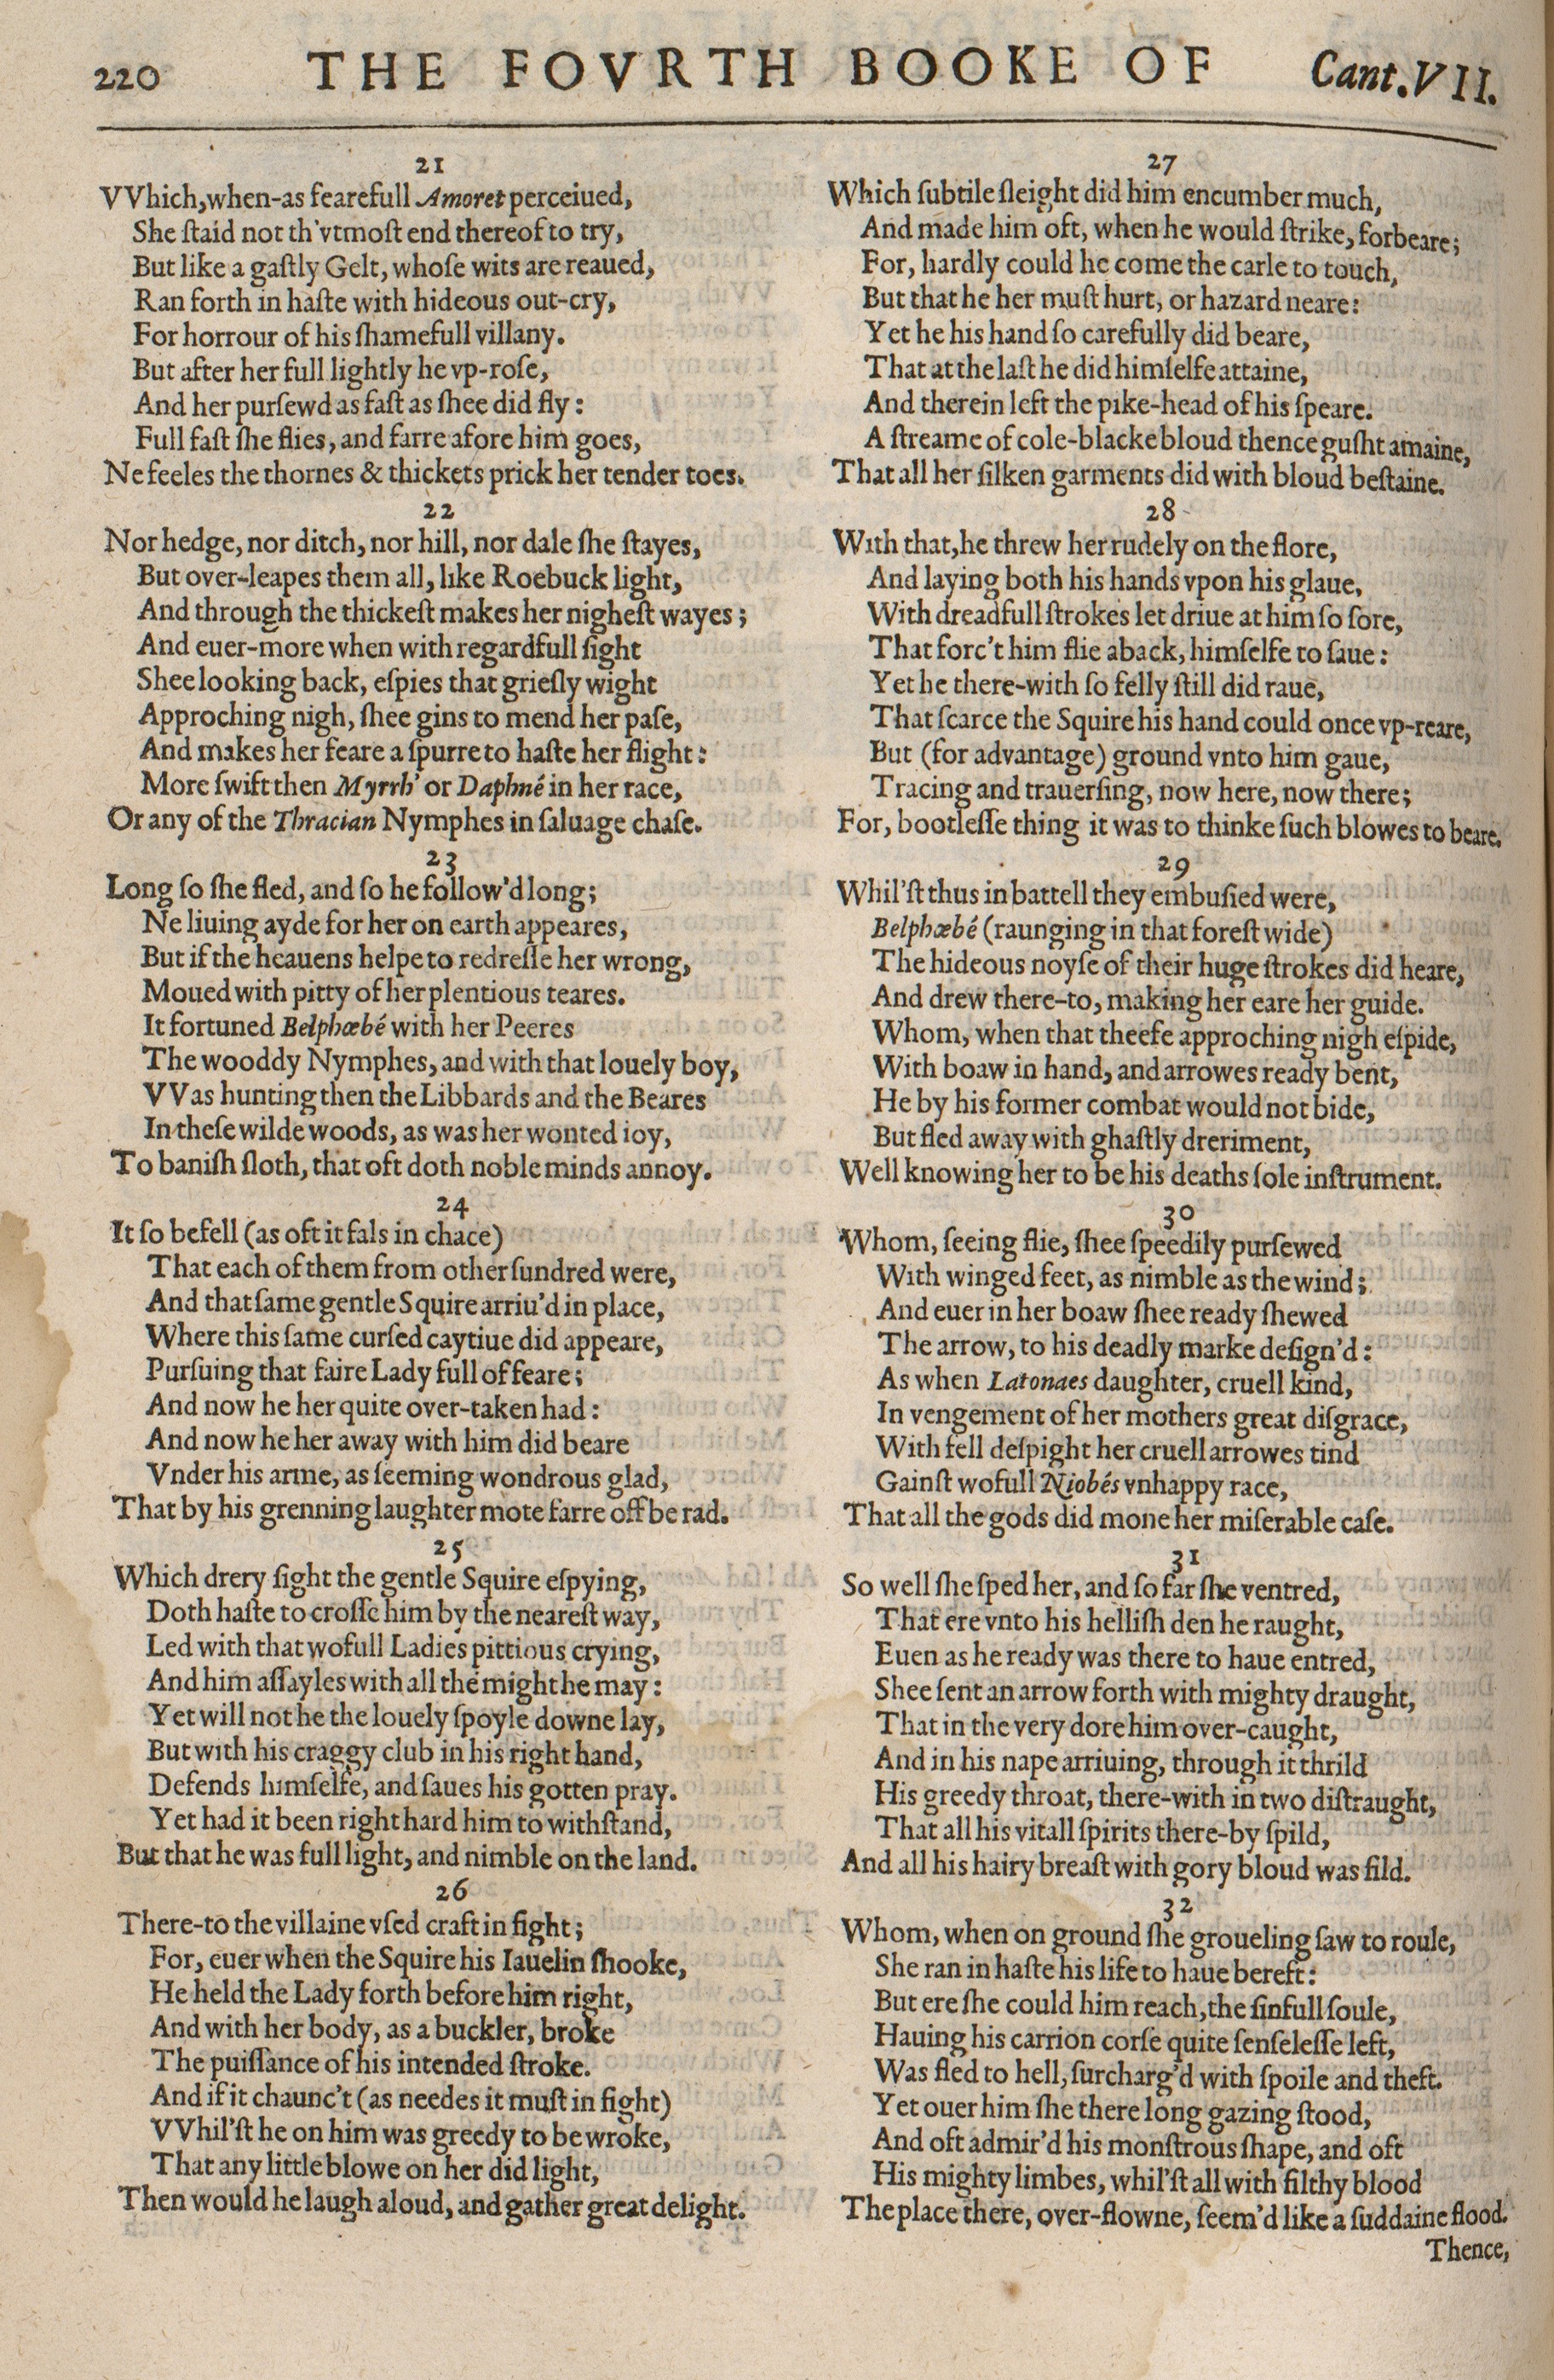 220 THE FOVRTH BOOKE OF Cant.VII.
21
VVhich,when-as fearefull Amoret perceiued,
She ſtaid not th'vtmoſt end thereof to try,
But like a gaſtly Gelt, whoſe wits are reaued,
Ran forth in haſte with hideous out-cry,
For horrour of his ſhamefull villany.
But after her full lightly he vp-roſe,
And her purſewd as faſt as ſhee did fly:
Full faſt ſhe flies, and farre afore him goes,
Ne feeles the thornes & thickets prick her tender toes.
22
Nor hedge, nor ditch, nor hill, nor dale ſhe ſtayes,
But over-leapes them all, like Roebuck light,
And through the thickeſt makes her nigheſt wayes;
And euer-more when with regardfull ſight
Shee looking back, eſpies that grieſly wight
Approching nigh, ſhee gins to mend her paſe,
And makes her feare a ſpurre to haſte her flight:
More ſwift then Myrrh' or Daphné in her race,
Or any of the Thracian Nymphes in ſaluage chaſe.
23
Long ſo ſhe fled, and ſo he follow'd long;
Ne liuing ayde for her on earth appeares,
But if the heauens helpe to redreſſe her wrong,
Moued with pitty of her plentious teares.
It fortuned Belphœbé with her Peeres
The wooddy Nymphes, and with that louely boy,
VVas hunting then the Libbards and the Beares
In theſe wilde woods, as was her wonted ioy,
To baniſh ſloth, that oft doth noble minds annoy.
24
It ſo befell (as oft it fals in chace)
That each of them from other ſundred were,
And that ſame gentle Squire arriu'd in place,
Where this ſame curſed caytiue did appeare,
Purſuing that faire Lady full of feare;
And now he her quite over-taken had:
And now he her away with him did beare
Vnder his arme, as ſeeming wondrous glad,
That by his grenning laughter mote farre off be rad.
25
Which drery ſight the gentle Squire eſpying,
Doth haſte to croſſe him by the neareſt way,
Led with that wofull Ladies pittious crying,
And him aſſayles with all the might he may:
Yet will not he the louely ſpoyle downe lay,
But with his craggy club in his right hand,
Defends himſelfe, and ſaues his gotten pray.
Yet had it been right hard him to withſtand,
But that he was full light, and nimble on the land.
26
There-to the villaine vſed craft in fight;
For, euer when the Squire his Iauelin ſhooke,
He held the Lady forth before him right,
And with her body, as a buckler, broke
The puiſſance of his intended ſtroke.
And if it chaunc't (as needes it muſt in fight)
VVhil'ſt he on him was greedy to be wroke,
That any little blowe on her did light,
Then would he laugh aloud, and gather great delight.
27
Which ſubtile ſleight did him encumber much,
And made him oft, when he would ſtrike, forbeare;
For, hardly could he come the carle to touch,
But that he her muſt hurt, or hazard neare:
Yet he his hand ſo carefully did beare,
That at the laſt he did himſelfe attaine,
And therein left the pike-head of his ſpeare.
A ſtreame of cole-blacke bloud thence guſht amaine,
That all her ſilken garments did with bloud beſtaine.
28
With that,he threw her rudely on the flore,
And laying both his hands vpon his glaue,
With dreadfull ſtrokes let driue at him ſo ſore,
That forc't him flie aback, himſelfe to ſaue:
Yet he there-with ſo felly ſtill did raue,
That ſcarce the Squire his hand could once vp-reare,
But (for advantage) ground vnto him gaue,
Tracing and trauerſing, now here, now there;
For, bootleſſe thing it was to thinke ſuch blowes to beare.
29
Whil'ſt thus in battell they embuſied were,
Belphœbé (raunging in that foreſt wide)
The hideous noyſe of their huge ſtrokes did heare,
And drew there-to, making her eare her guide.
Whom, when that theefe approching nigh eſpide,
With boaw in hand, and arrowes ready bent,
He by his former combat would not bide,
But fled away with ghaſtly dreriment,
Well knowing her to be his deaths ſole inſtrument.
30
Whom, ſeeing flie, ſhee ſpeedily purſewed
With winged feet, as nimble as the wind;
And euer in her boaw ſhee ready ſhewed
The arrow, to his deadly marke deſign'd:
As when Latonaes daughter, cruell kind,
In vengement of her mothers great diſgrace,
With fell deſpight her cruell arrowes tind
Gainſt wofull Niobés vnhappy race,
That all the gods did mone her miſerable caſe.
31
So well ſhe ſped her, and ſo far ſhe ventred,
That ere vnto his helliſh den he raught,
Euen as he ready was there to haue entred,
Shee ſent an arrow forth with mighty draught,
That in the very dore him over-caught,
And in his nape arriuing, through it thrild
His greedy throat, there-with in two diſtraught,
That all his vitall ſpirits there-by ſpild,
And all his hairy breaſt with gory bloud was fild.
32
Whom, when on ground ſhe groueling ſaw to roule,
She ran in haſte his life to haue bereft:
But ere ſhe could him reach,the ſinfull ſoule,
Hauing his carrion corſe quite ſenſeleſſe left,
Was fled to hell, ſurcharg'd with ſpoile and theft.
Yet ouer him ſhe there long gazing ſtood,
And oft admir'd his monſtrous ſhape, and oft
His mighty limbes, whil'ſt all with filthy blood
The place there, over-flowne, ſeem'd like a ſuddaine flood.
Thence,